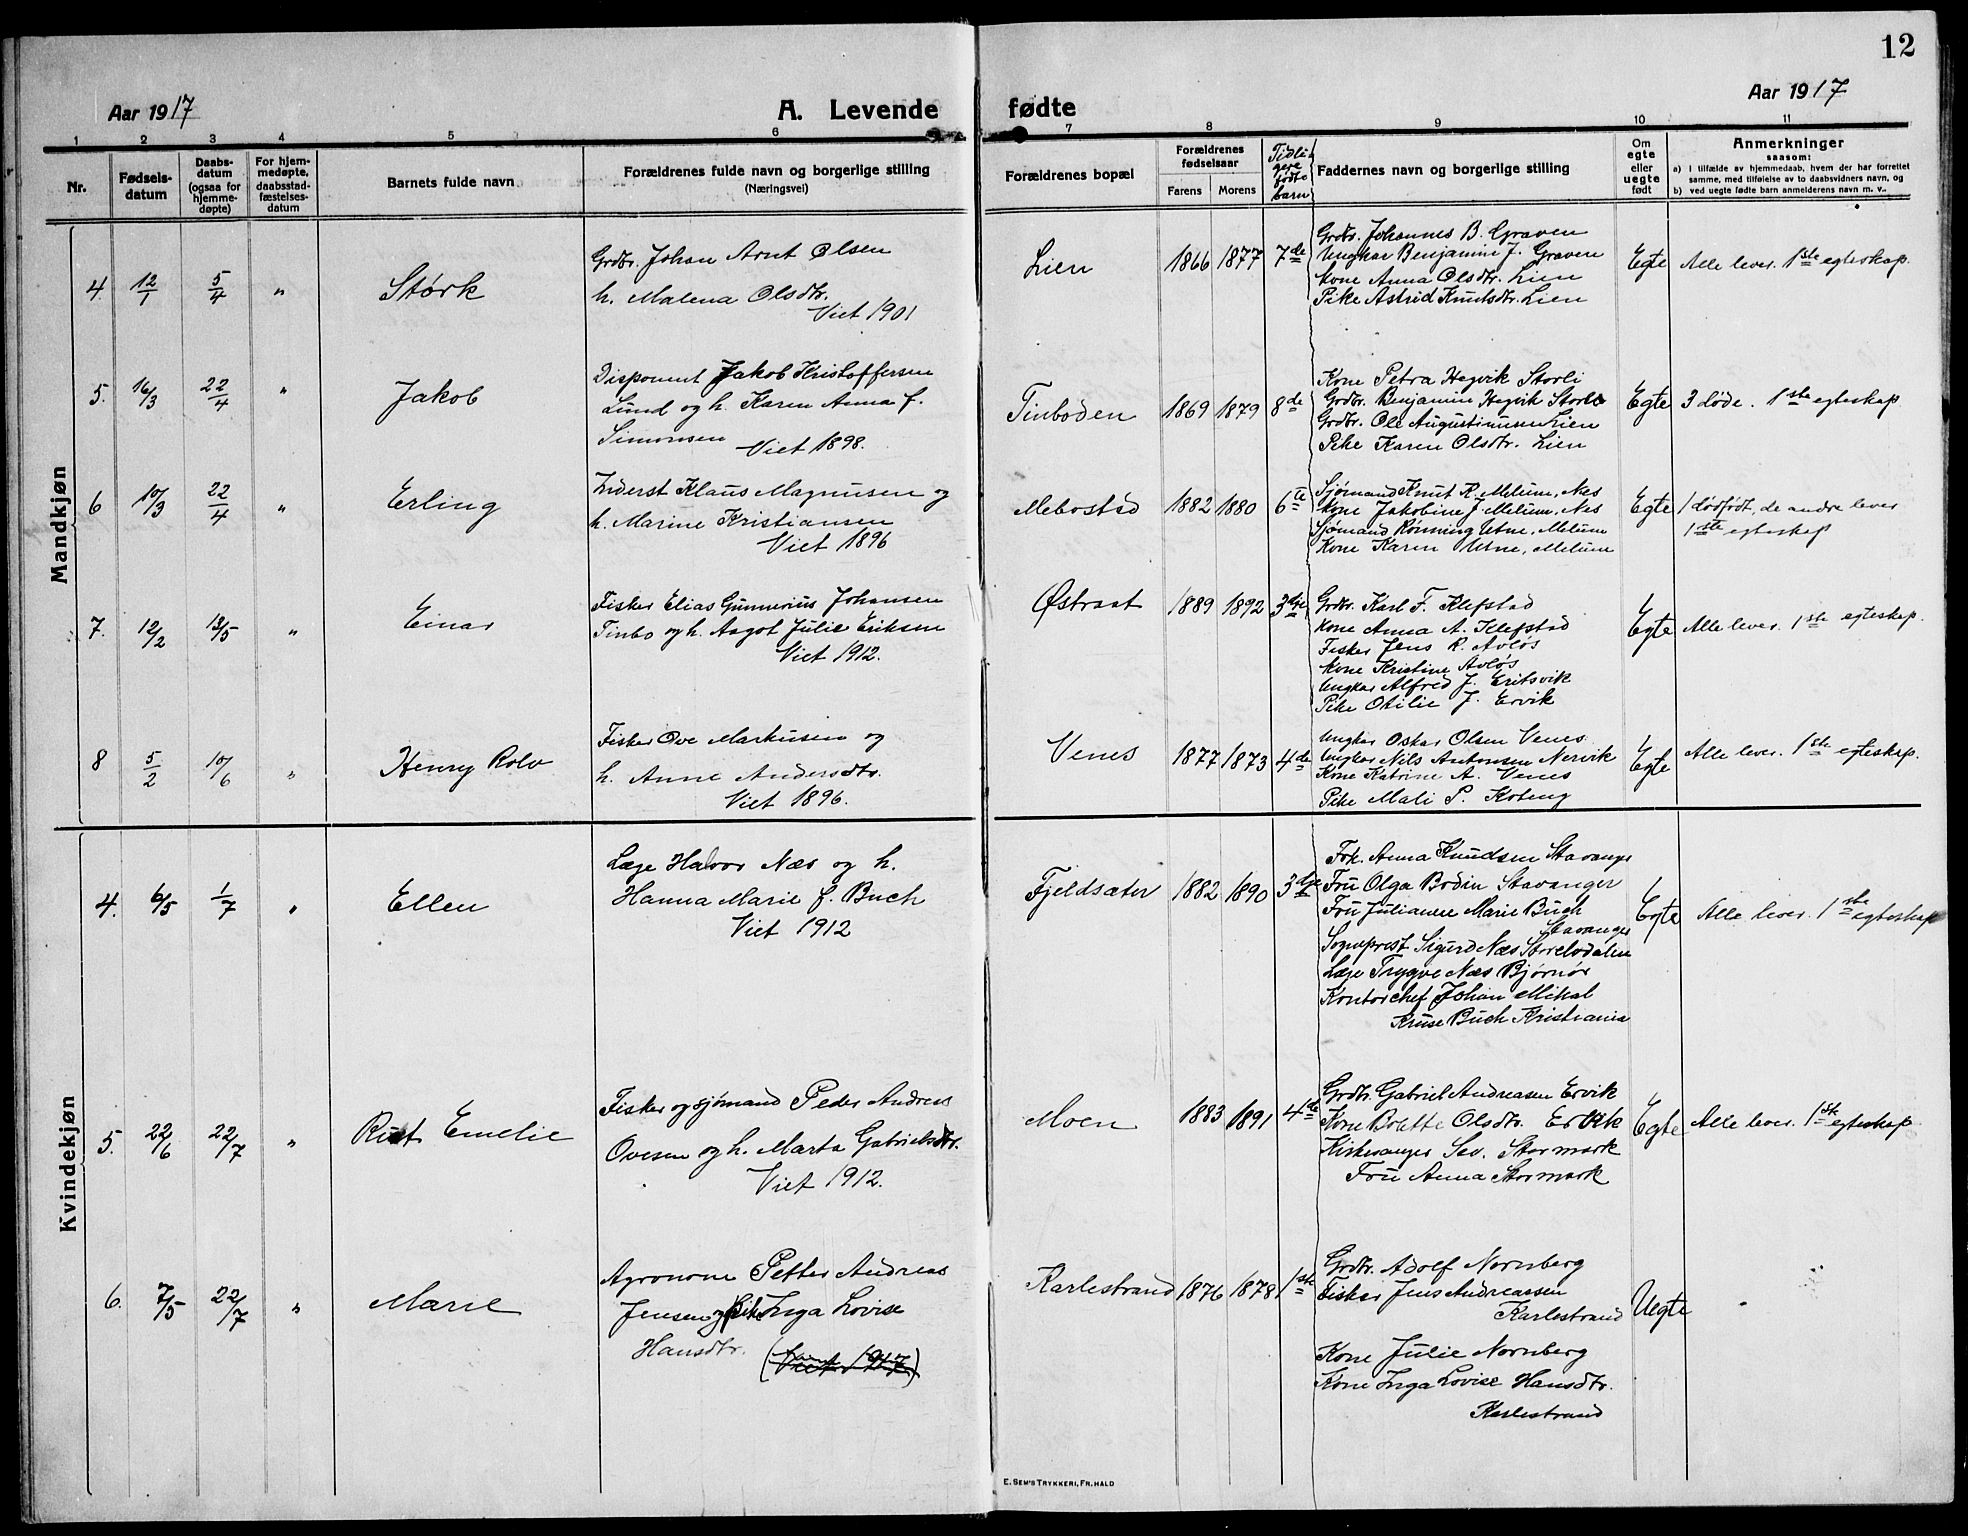 12
Aar 1917
A. Levende fødte
Aar 1917
1 2 3 4 5 6 7 8 9 10 11
Nr.
Fødsels-
datum
Daabs-
datum
(ogsaa for
hjemme-
døpte)
For hjem-
medøpte,
daabsstad-
fæstelses-
datum
Barnets fulde navn
Forældrenes fulde navn og borgerlige stilling
(Næringsvei)
Forældrenes bopæl
Forældrenes
fødselsaar
Farens Morens
Tidli-
gere
fødte
barn
Faddernes navn og borgerlige stilling
Om
egte
eller
uegte
født
Anmerkninger
saasom:
a) I tilfælde av hjemmedaab, hvem der har forrettet
samme, med tilføielse av to daabsvidners navn, og
b) ved uegte fødte barn anmelderens navn m. v.
Mandkjøn
4. 12/1 5/4 " Størk
Grdbr. Johan Arnt Olsen
h. Malena Olsdtr.
Viet 1901
Lien 1866 1877 7de
Grdbr. Johannes B. Graven
Ungkar Benjamin J. Graven
Kone Anna Olsdtr. Lien
Pike Astrid Knutsdtr. Lien
Egte Alle lever. 1ste egteskap.
5. 16/3 22/4 " Jakob
Disponent Jakob Kristoffersen
Lund og h. Karen Anna f.
Simonsen
Viet 1898.
Tinboden 1869 1879 8de
Kone Petra Hegvik Storli
Grdbr. Benjamin Hegvik Storli
Grdbr. Ole Augustinusen Lien
Pike Karen Olsdtr. Lien
Egte 3 døde. 1ste egteskap
6 10/3 22/4 " Erling
Inderst Klaus Magnusen og
h. Marine Kristiansen
Viet 1896
Mebostad 1882 1880 6te
Sjømand Knut R. Melum, Nes
Kone Jakobine J. Melum, Nes
Sjømand Rønning Utne, Melum
Kone Karen Utne, Melum
Egte 1 dødfødt, de andre lever
1ste egteskap
7. 12/2 13/5 " Einar
Fisker Elias Gunnerius Johansen
Tinbo og h. Aagot Julie Eriksen
Viet 1912.
Østraat 1889 1892 3dje
Grdbr. Karl F. Klefstad
Kone Anna A. Klefstad
Fisker Jens R. Avløs
Kone Kristine Avløs
Ungkar Alfred J. Eritsvik
Pike Otilie J. Ervik
Egte Alle lever. 1ste egteskap.
8 5/2 10/6 " Henry Rolv
Fisker Ove Markusen og
h. Anne Andersdtr.
Viet 1896.
Venes 1877 1873 4de
Ungkar Oskar Olsen Venes
Ungkar Nils Antonsen Nervik
Kone Katrine A. Venes
Pike Mali P. Koteng
Egte Alle lever. 1ste egteskap.
Kvindekjøn
4. 6/5 1/7 " Ellen
Læge Halvor Næs og h.
Hanna Marie f. Buch
Viet 1912
Fjeldsæter 1882 1890 3dje
Frk. Anna Knudsen Stavanger
Fru Olga Bodin Stavanger
Fru Julianne Marie Buch
Stavanger
Sogneprest Sigurd Næs Storelvdalen
Læge Trygve Næs Bjørnør
Kontorchef Johan Mikal
Kruse Buch Kristiania
Egte Alle lever. 1ste egteskap
5. 22/6 22/7 " Rut Emelie
Fisker og sjømand Peder Andreas
Ovesen og h. Marta Gabrielsdtr.
Viet 1912.
Moen 1883 1891 4de
Grdbr. Gabriel Andreasen Ervik
Kone Bolette Olsdtr. Ervik
Kirkesanger Sev. Stormark
Fru Anna Stormark
Egte Alle lever. 1ste egteskap
6. 7/5 22/7 " Marie
Agronom Petter Andreas
Jensen og pike Inga Lovise
Hansdtr. (Viet 1917)
Karlestrand 1876 1878 1ste
Grdbr. Adolf Nornberg
Fisker Jens Andreassen
Karlestrand
Kone Julie Nornberg
Kone Inga Lovise Hansdtr.
Karlestrand
Uegte
E. SEM'S TRYKKERI, FR.HALD